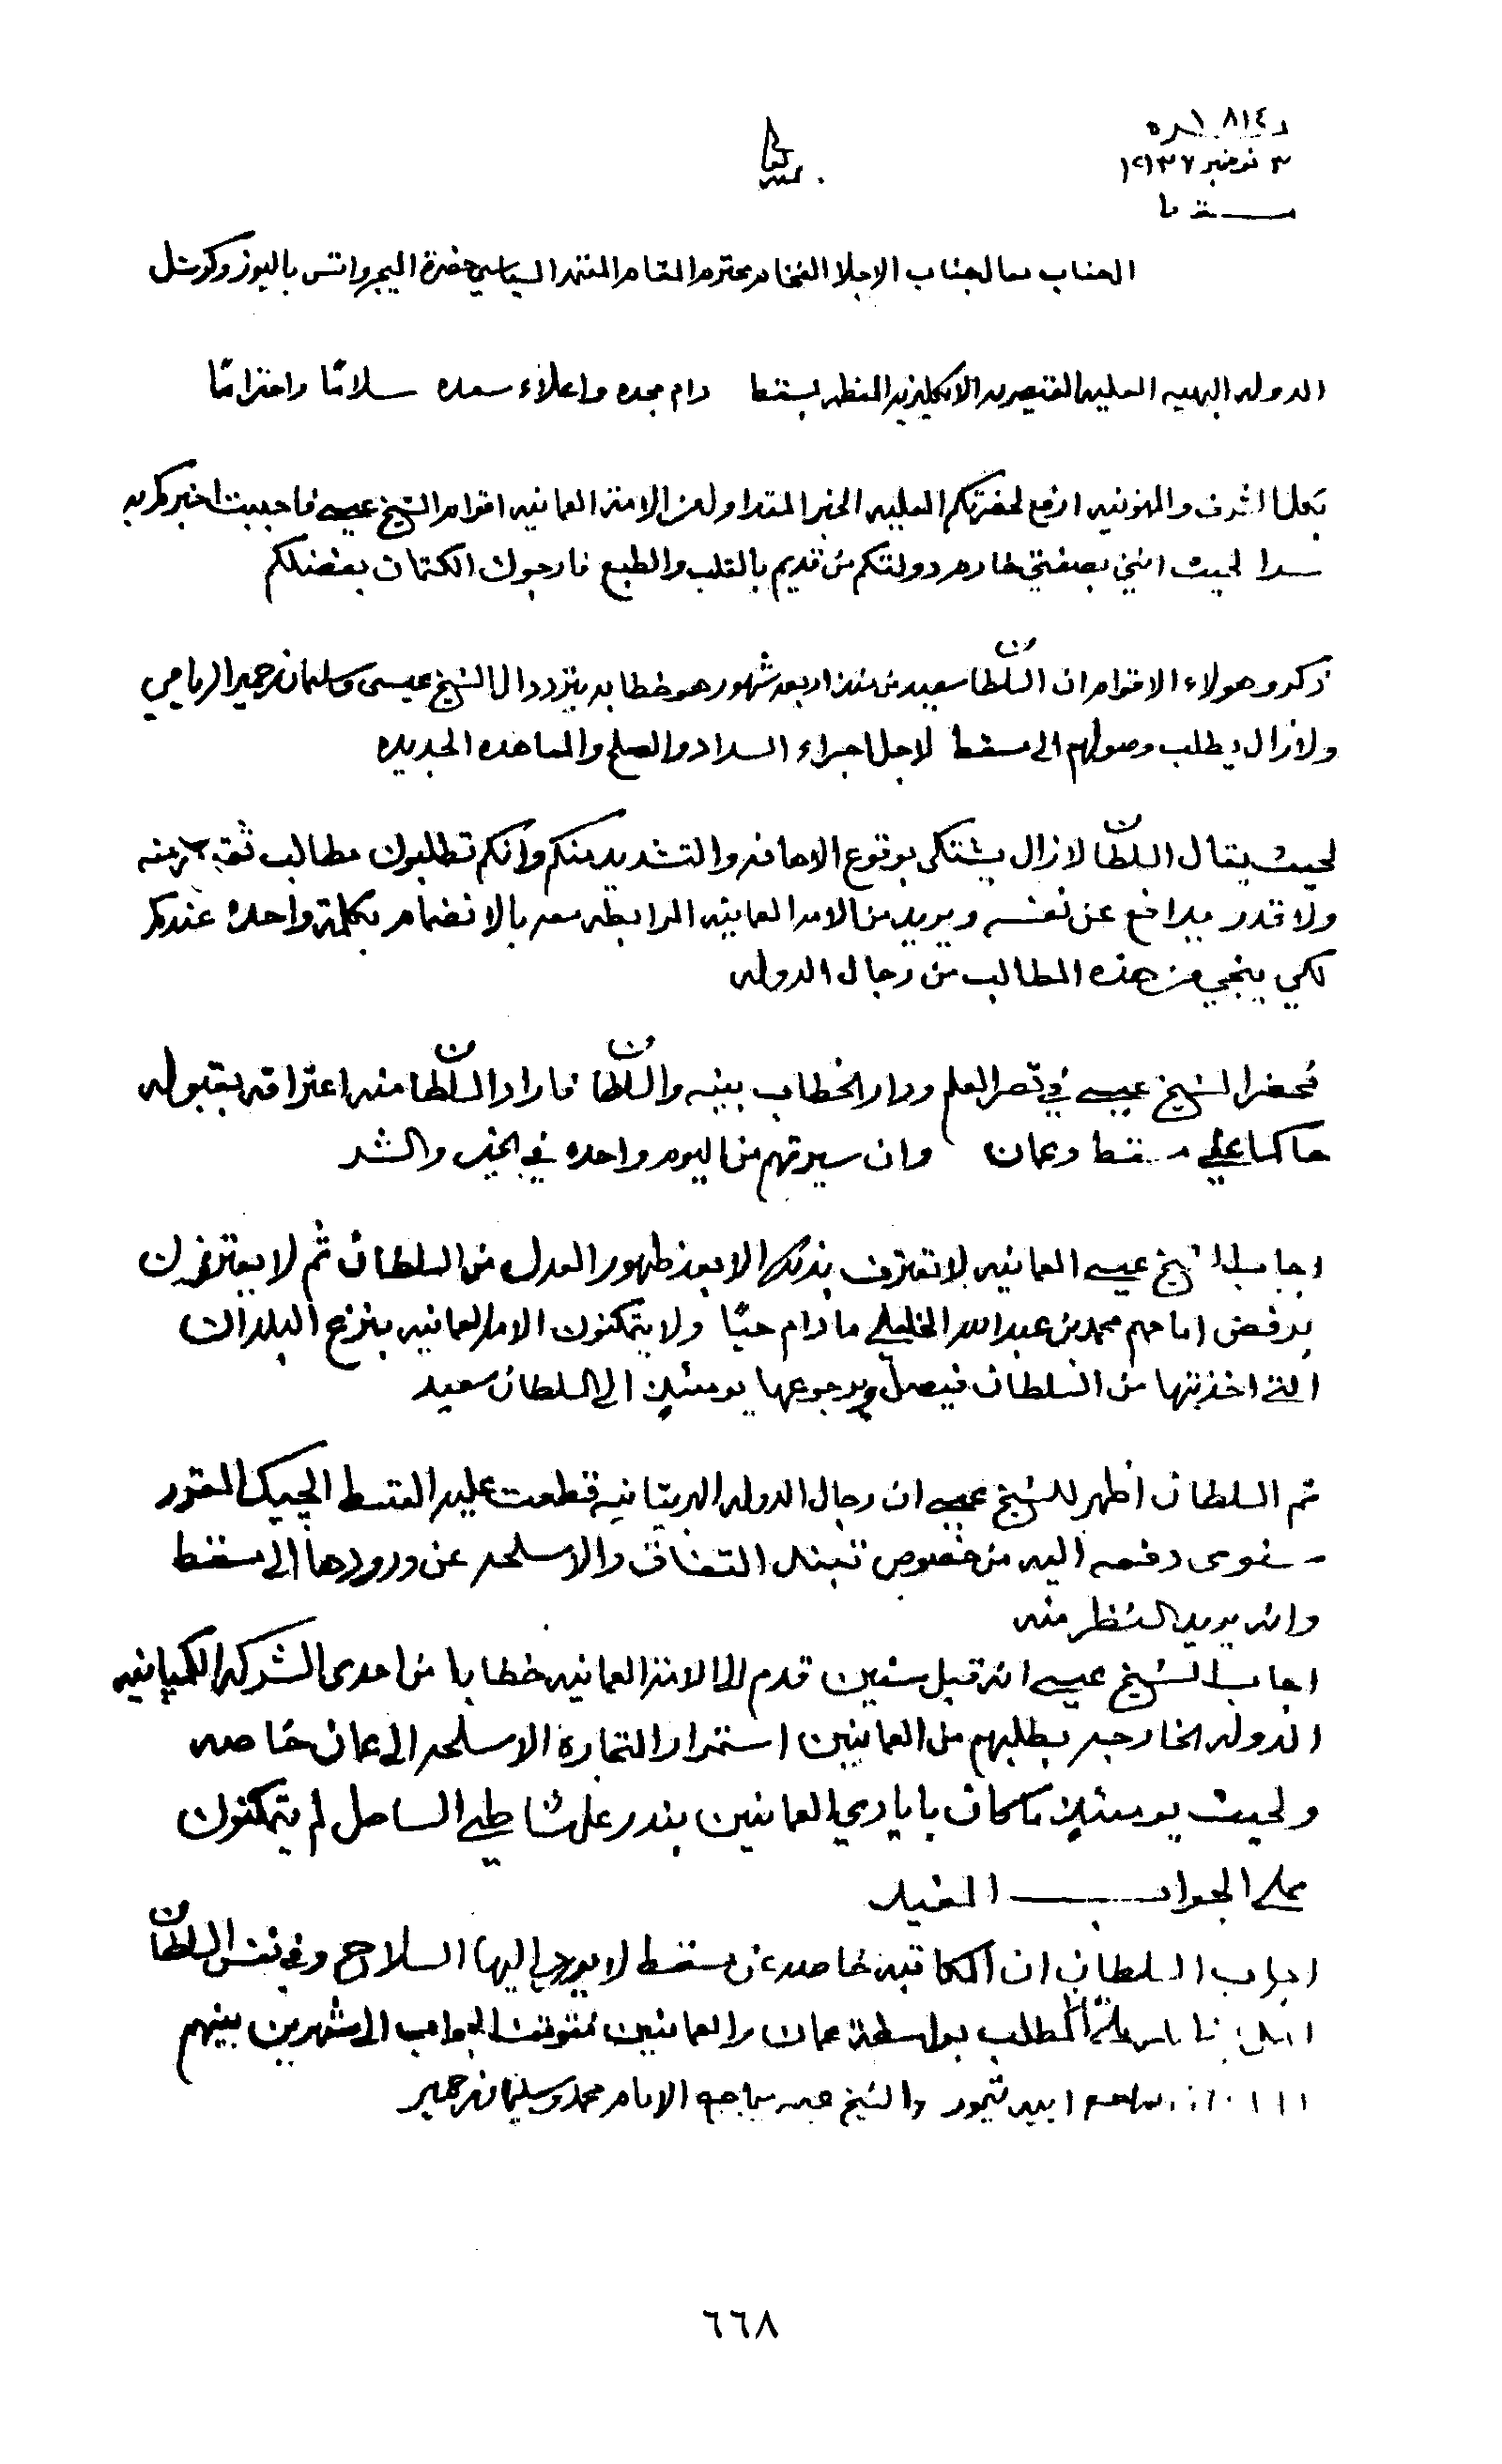 ٨١٤
٣ نوفمبر ١٩٣٧
الجناب معالجناب الاجلا الفخام محترم المقام المعتمد السياسي حضرة الميجر واتس باليوز وكونسل
الدوله البهيه العليه القيصريه الانكليزيه المعظمه بمسقط دام مجده واعلاء سعده سلامًا واحترامًا
بكل الشرف والممنونيه ارفع لحضرتكم العليه الخبر المتداول من الامة العمانيه اقوام الشيخ عيسى فاحببت اخبركم به
سرا لحيث انني بصفتي خادم دولتكم من قديم بالقلب والطبع فارجوك الكتمان بفضلكم
ذكرو هولاء الاقوام ان السلطان سعيد من منذ اربعة شهور هو خطابه يتردد الى الشيخ عيسى وسليمان بن حمير الريامي
ولازال يطلب وصولهم الى مسقط لاجل اجراء السداد والصلح والمعاهده الجديده
لحيث يقال السلطان لازال يشتكي بوقوع الاهانه والتشديد منكم وانكم تطلبون مطالب منه
ولا قدر يدافع عن نفسه ويريد من الامه العمانيه الرابطه معه بالانضمام بكلمة واحده عندكم
لكي ينجي من هذه المطالب من رجال الدوله
فحضر الشيخ عيسى في قصر العلم ودار الخطاب بينه والسلطان فاراد السلطان منه اعترافه بقبوله
حاكما على مسقط وعمان وان سيرتهم من اليوم واحده في الخير والشر
اجاب الشيخ عيسى العمانيه لا تعترف بذلك الا بعد ظهور العدل من السلطان ثم لا يعترفون
برفض امامهم محمد بن عبدالله الخليلي ما دام حيًا ولا يتمكنون الامه العمانيه بنزع البلدان
التي اخذتها من السلطان فيصل ويرجوعها يومئذٍ الى السلطان سعيد
ثم السلطان اظهر للشيخ عيسى ان رجال الدوله البريتانيه قطعت عليه القسط الجيك المقرر
سنوي دفعه اليه من خصوص تبندل التفاق والاسلحه عن ورودها الى مسقط
وانه يريد النظر منه
اجاب الشيخ عيسى انه قبل سنين قدم الى الامة العمانيه خطابا من احدى الشركه الكمبانيه
الدوله الخارجيه بطلبهم من العمانيين استمرار التجارة الاسلحه الى عمان خاصه
ولحيث يومئذٍ ما كان بايادي العمانين بندر على شاطي الساحل لم يتمكنون
على الجواب المفيد
اجاب السلطان ان المكاتبه خاصه عن مسقط لا يورد اليها السلاح وفي نفس السلطان
المطلب بواسطة عمان والعمانين فتوقف الجواب الى شهرين بينهم
ابيه تيمور والشيخ عيسى يواجه الامام محمد وسليمان بن حمير
٦٦٨